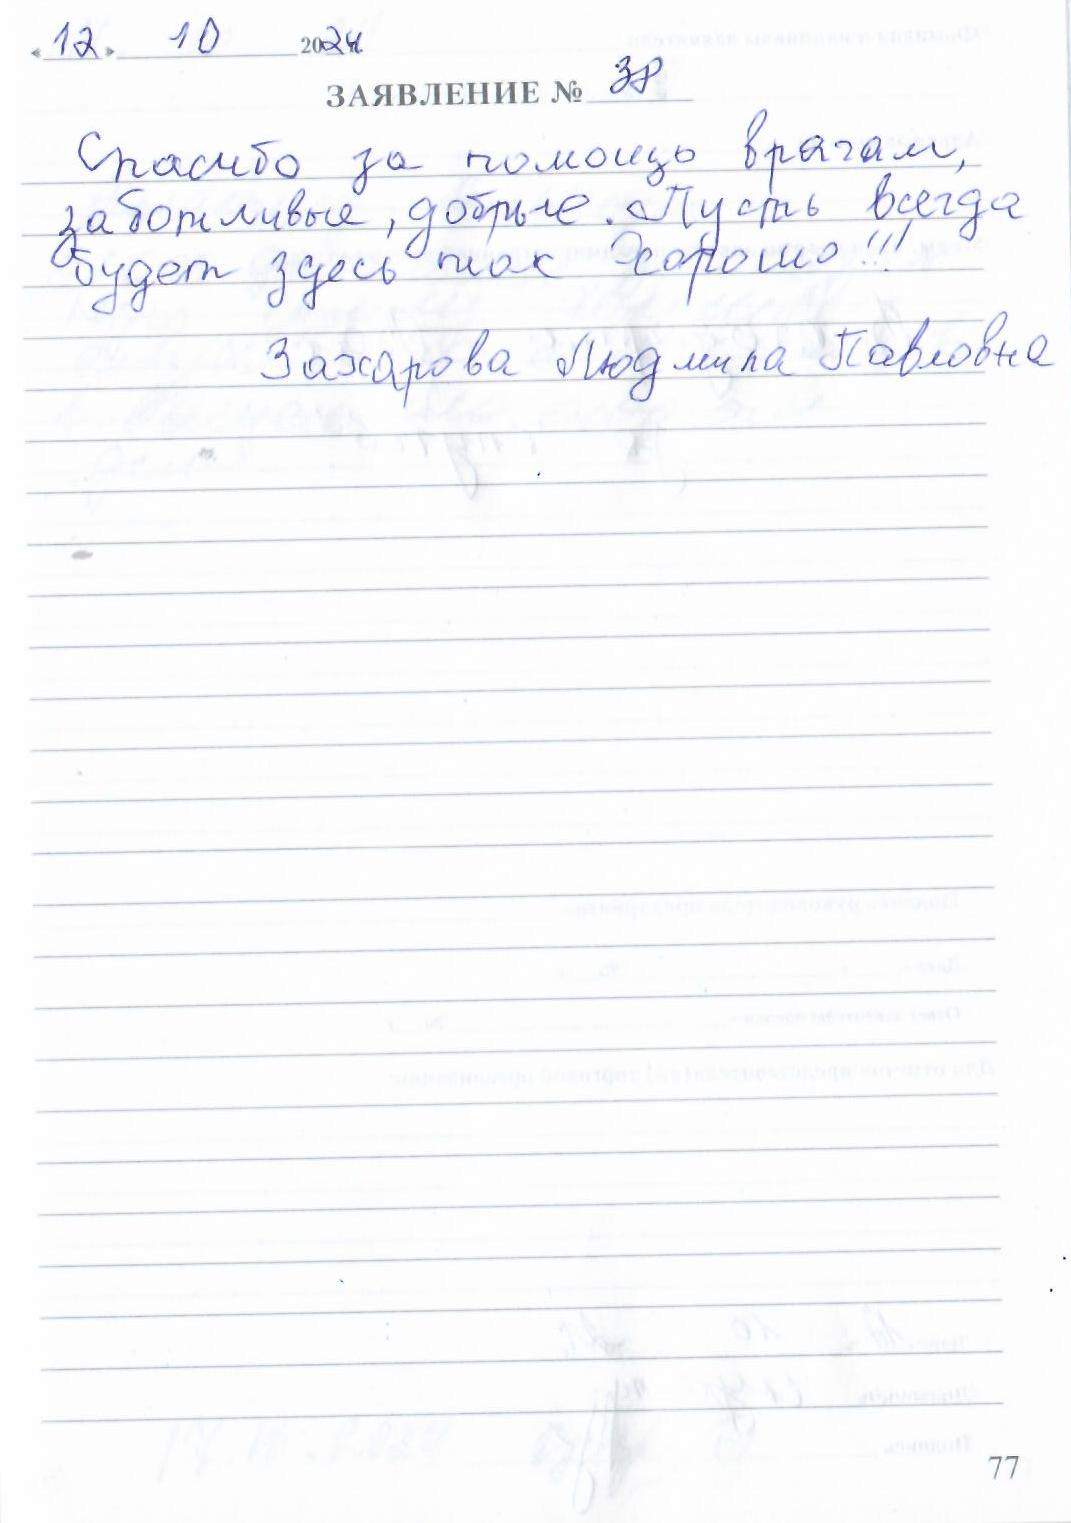 «12» 10 2024
ЗАЯВЛЕНИЕ № 38
Спасибо за помощь врачам,
заботливые, добрые. Пусть всегда
будет здесь так хорошо!!!
Захарова Людмила Павловна
77